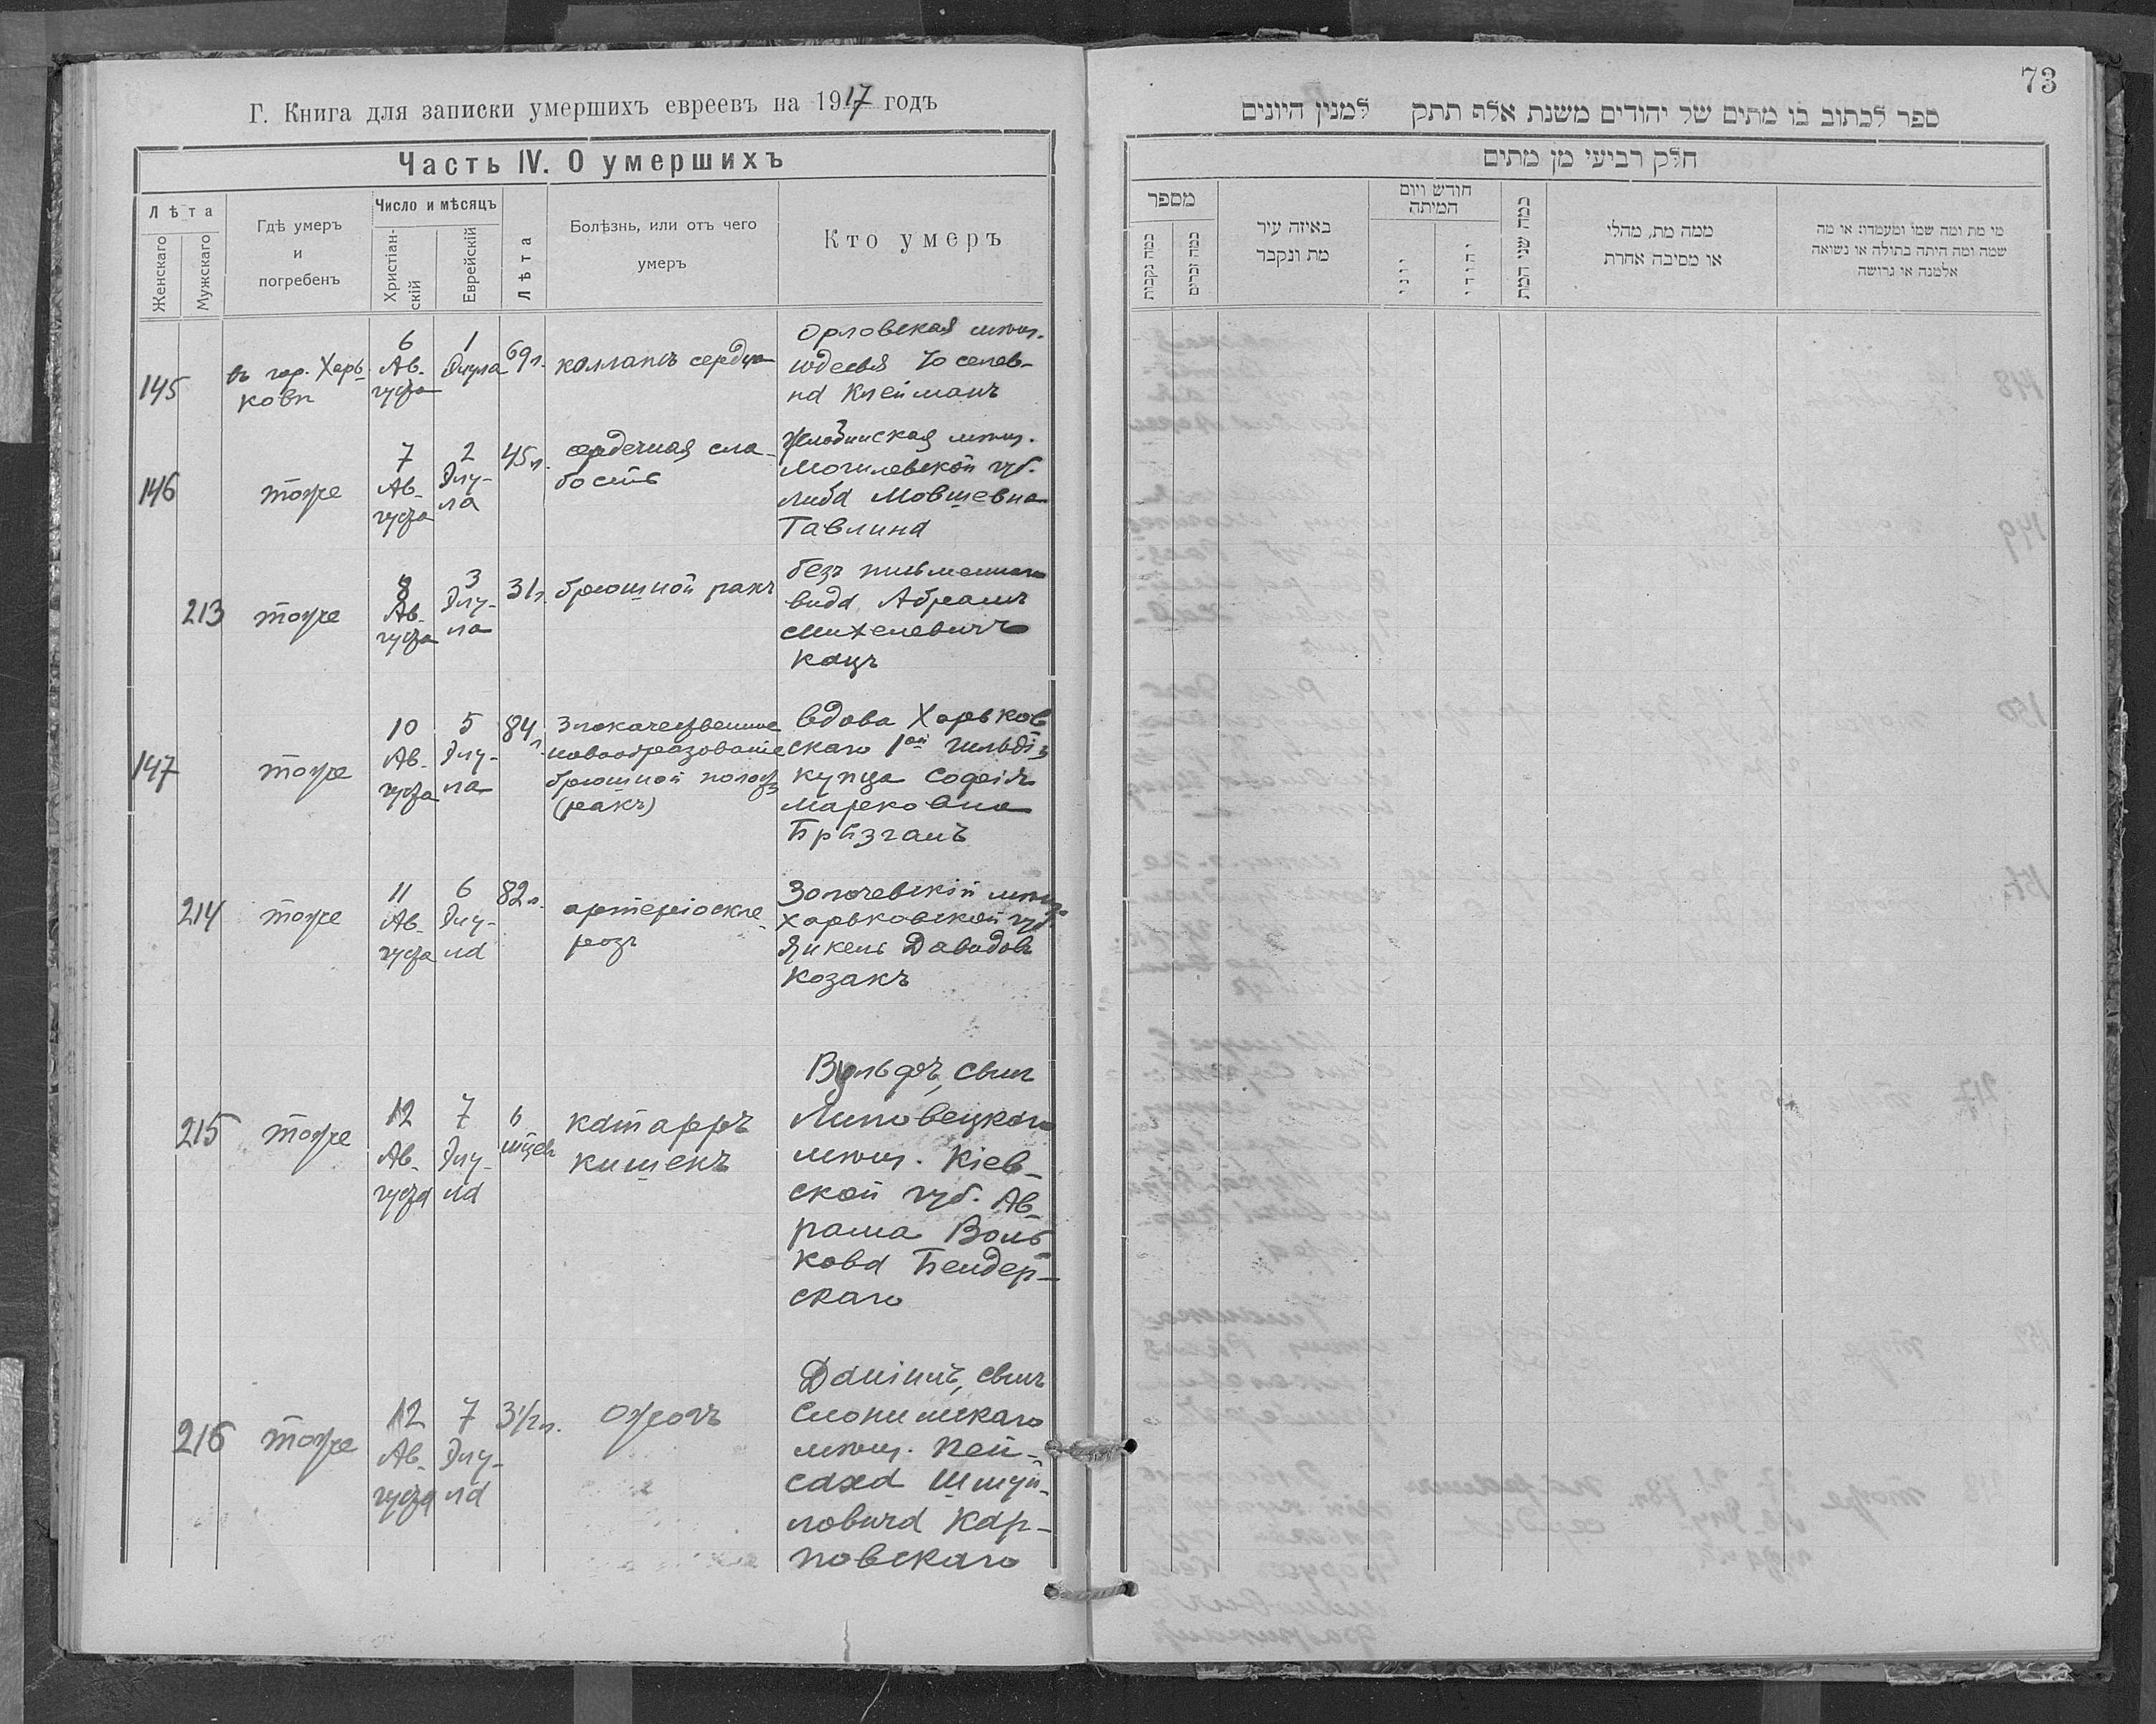 Г. Книга для записки умершихъ евреевъ на 1917 годъ
Часть IV. О умершихъ
Лѣта
Женскаго
Мужскаго
Гдѣ умеръ
и
погребенъ
Число и мѣсяцъ
Христіан-
скій
Еврейскій
Лѣта
Болѣзнь, или отъ чего
умеръ
Кто умеръ
145
въ гор. Харь-
ковѣ
6
Ав-
густа
1
Элула
69 л.
коллапсъ сердца
Орловская мѣщ.
Іоселев-
на Клейманъ
146
тоже
7
Ав-
густа
2
Элу-
ла
45 л.
сердечная сла-
бость
мѣщ.
Могилевской губ.
Либа Мовшевна
Тавлина
213
тоже
8
Ав-
густа
3
Элу-
ла
31 л.
брюшной ракъ
безъ письменнаго
вида Абрамъ
Михелевичъ
Кацъ
147
тоже
10
Ав-
густа
5
Элу-
ла
84 л.
Злокачественное
новообразованіе
брюшной полости
(ракъ)
вдова Харьков
скаго 1ой гильдіи
купца Софія
Марковна
Брызганъ
214
тоже
11
Ав-
густа
6
Элу-
ла
82 л.
артеріоскле-
розъ
Золочевскій мѣщ.
Харьковской губ.
Янкель Давидовъ
Козакъ
215
тоже
12
Ав-
густа
7
Элу-
ла
6
мѣсц
катарръ
кишекъ
Вульфъ, сынъ
Липовецкаго
мѣщ. Кіев-
ской губ. Ав-
рама Воль-
кова Бендер-
скаго
216
тоже
12
Ав-
густа
7
Элу-
ла
3 1/2 л.
Ожогъ
Даніилъ, сынъ
Слонимскаго
мѣщ. Пей-
саха Шмуй-
ловича Кар-
повскаго
73
ספר לכתוב בו מתים של יהודים משנת אלף תתק למנין היונים
חלק רביעי מן מתים
מספר
כמה נקבות
כמה זכרים
באיזה עיר
מת ונקבר
חודש ויום
המיתה
יוני
יהודי
כמה שני המת
ממה מת, מחלי
או מסיבה אחרת
מי מת ומה שמו ומעמדו: או מה
שמה ומה היתה בתולה או נשואה
אלמנה או גרושה